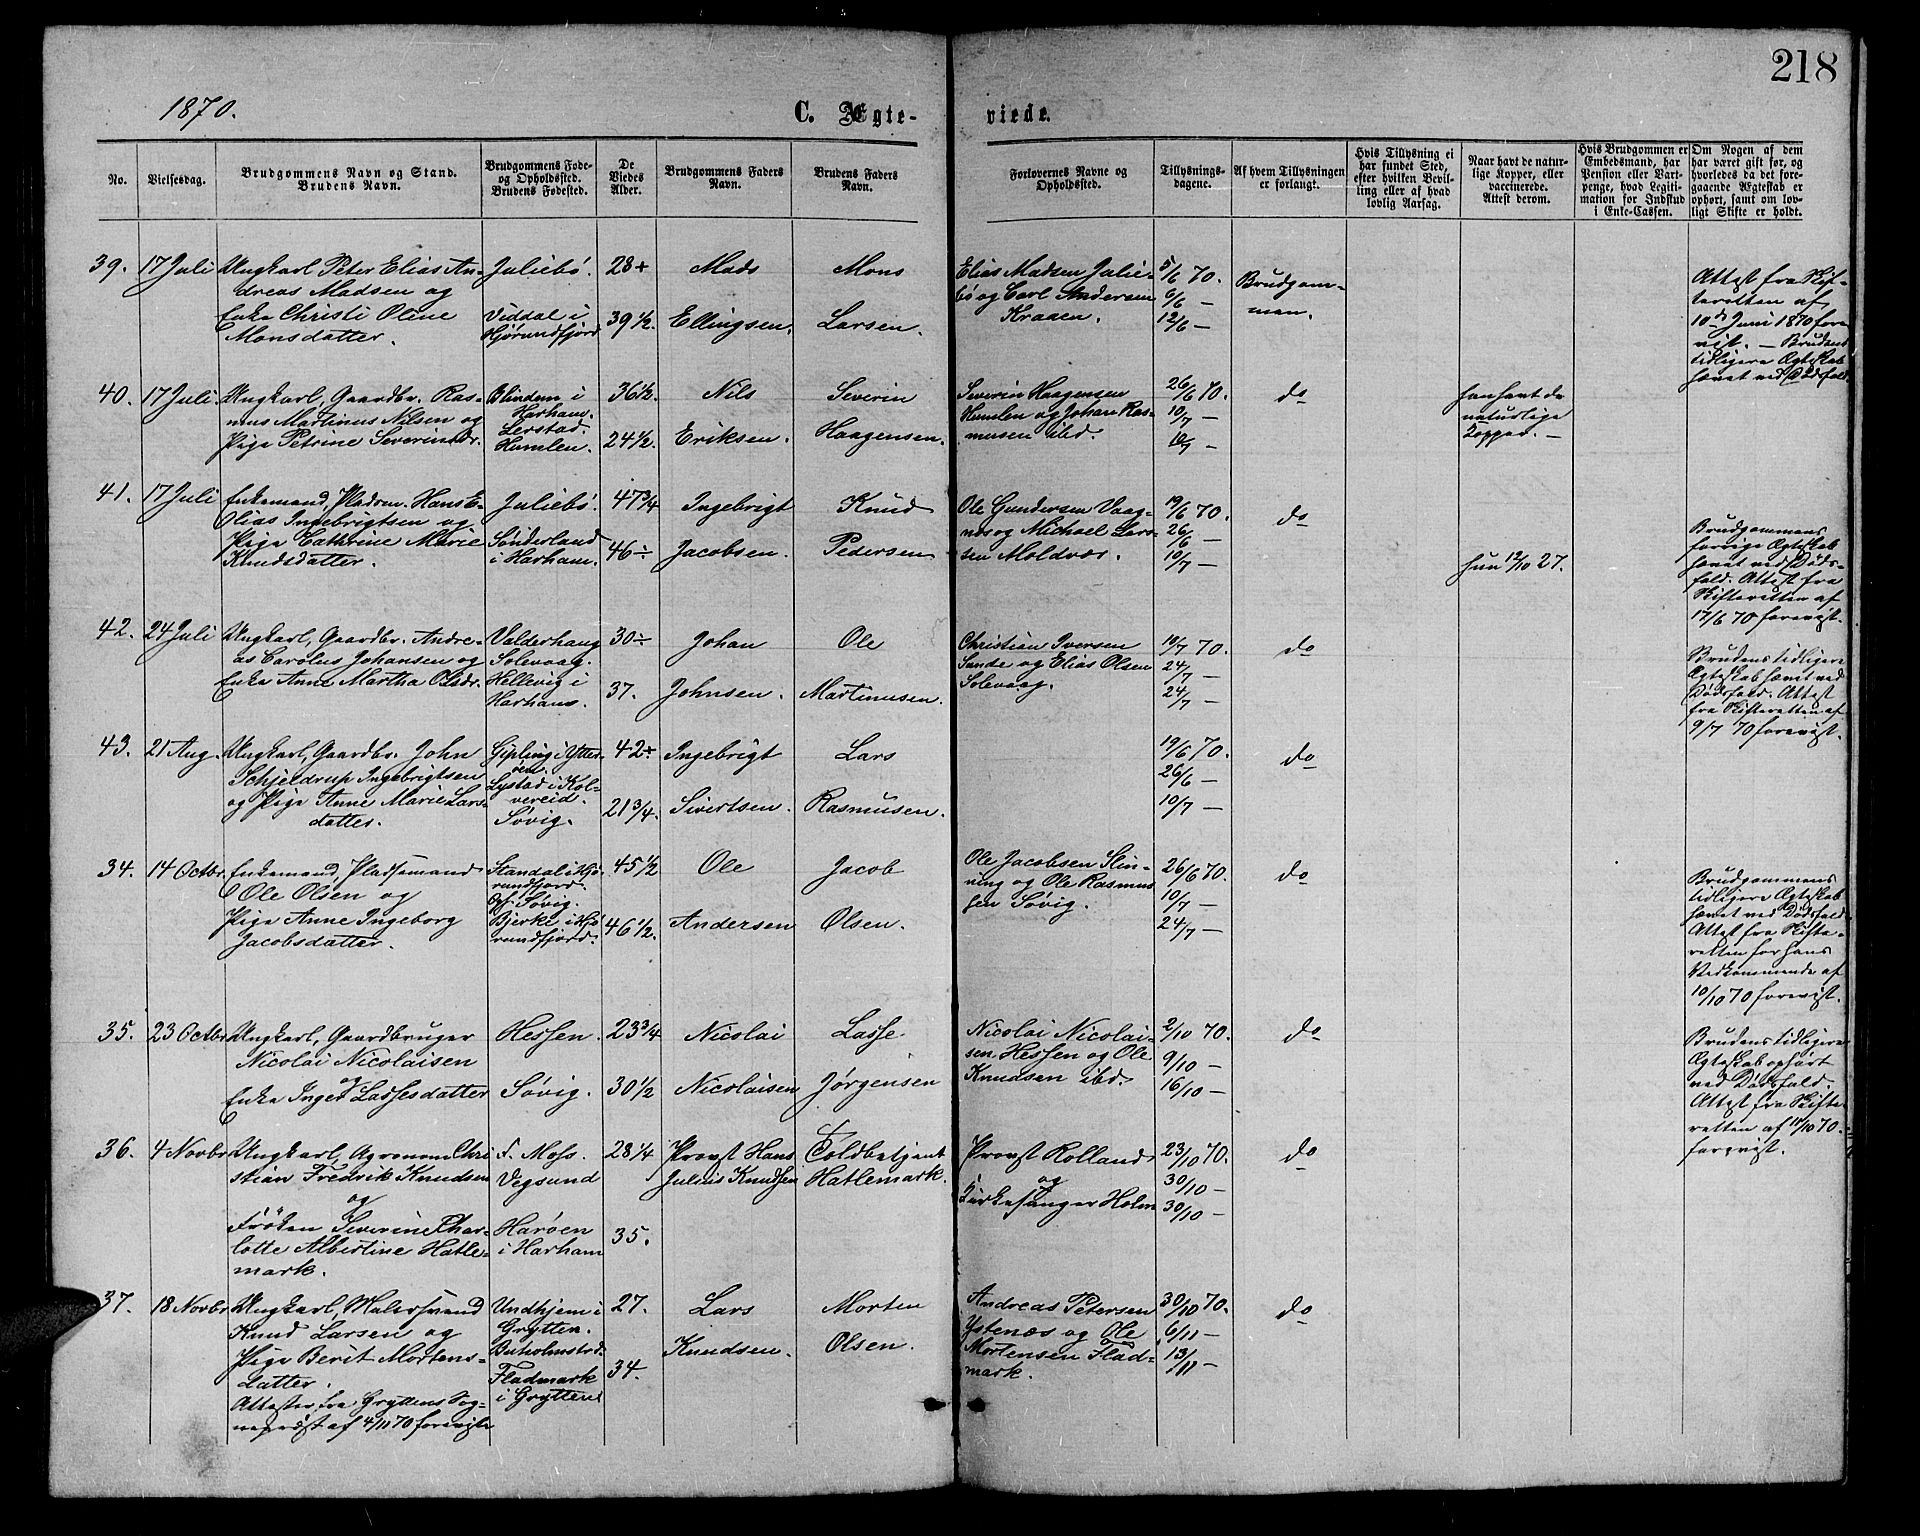 218
1870.
C. Ægte-
viede.
No.
Vielsesdag.
Brudgommens Navn og Stand.
Brudens Navn.
Brudgommens Føde-
og Opholdssted.
Brudens Fødested.
De
Viedes
Alder.
Brudgommens Faders
Navn.
Brudens Faders
Navn.
Forlovernes Navne og
Opholdssted.
Tillysnings-
dagene.
Af hvem Tillysningen
er forlangt.
Hvis Tillysning ei
har fundet Sted,
efter hvilken Bevil-
ling eller af hvad
lovlig Aarsag.
Naar havt de natur-
lige Kopper, eller
vaccinerede.
Attest derom.
Hvis Brudgommen er
Embedsmand, har
Pension eller Vart-
penge, hvad Legiti-
mation for Indskud
i Enke-Cassen.
Om Nogen af dem
har været gift før, og
hvorledes da det fore-
gaaende Ægteskab er
ophørt, samt om lov-
ligt Skifte er holdt.
39. 17 Juli
Ungkarl Peter Elias An-
dreas Madsen og
Enke Christi Oline
Monsdatter.
Juliebø.
Viddal i
Hjørundfjord
28 ÷
39 1/2.
Mads
Ellingsen.
Mons
Larsen.
Elias Madsen Julie-
bø og Carl Andersen
Kraaen.
5/6 70.
6/6 —
12/6 —
Brudgom-
men.
Attest fra Skif-
teretten af
10de Juni 1870 fore
vist. — Brudens
tidligere Ægteskab
hævet ved Dødsfald.
40. 17 Juli.
Ungkarl, Gaardbr. Ras-
mus Martinus Nilsen og
Pige Petrine Severinsdr.
Blindem i
Harham.
Lerstad.
Humlen.
36 1/2.
24 1/2.
Nils
Eriksen.
Severin
Haagensen.
Severin Haagensen
Humlen og Johan Ras-
musen ibd.
26/6 70.
10/7 —
10/7 —
do
han havt de
naturlige
Kopper. —
41. 17 Juli
Enkemand, Pladsm. Hans E-
lias Ingebrigtsen og
Pige Cathrine Marie
Knudsdatter.
Juliebø.
Sønderland
i Harham.
47 3/4
46 ÷
Ingebrigt
Jacobsen.
Knud
Pedersen
Ole Gundersen Vaag-
nes og Michael Lars-
sen Moldvær.
19/6 70.
26/6 —
10/7 —
do
hun 12/10 27.
Brudgommens
forrige Ægteskab
hævet ved Døds-
fald. Attest fra
Skifteretten af
17/6 70 forevist.
42. 24 Juli
Ungkarl, Gaardbr. Andre-
as Carolus Johansen og
Enke Anne Martha Olsdr.
Valderhaug
Solevaag.
Hellevig i
Harham.
30 ÷
37.
Johan
Johnsen.
Ole
Martinusen.
Christian Iversen
Sunde og Elias Olsen
Solevaag.
10/7 70.
24/7 —
24/7 —
do
Brudens tidligere
Ægteskab hævet ved
Dødsfald. Attest
fra Skifteretten af
9/7 70 forevist.
43. 21 Aug.
Ungkarl, Gaardbr. John
Schjeldrup Ingebrigtsen
og Pige Anne Marie Lars-
datter.
Gipling i Ytter-
øen.
Lystad i Kol-
vereid.
Søvig.
42 ÷
21 3/4.
Ingebrigt
Sivertsen.
Lars
Rasmusen.
19/6 70.
26/6 —
10/7 —
do
34. 14 Octbr.
Enkemand, Pladsemand
Ole Olsen og
Pige Anne Ingeborg
Jacobsdatter.
Standal i Hjø-
rundfjord.
Oph. Søvig.
Bjerke i Hjø-
rundfjord.
45 1/2
46 1/2.
Ole
Andersen
Jacob
Olsen.
Ole Jacobsen Slin-
ning og Ole Rasmus-
sen Søvig.
26/6 70.
10/7 —
24/7 —
do
Brudgommens
tidligere Ægteskab
hævet ved Dødsfald.
Attest fra Skifte-
retten for hans
Vedkommende af
10/10 70 forevist.
35. 23 Octbr
Ungkarl, Gaardbruger
Nicolai Nicolaisen
og
Enke Inger Lassesdatter
Hessen.
Søvig.
23 3/4
30 1/2
Nicolai
Nicolaisen
Lasse
Jørgensen
Nicolai Nicolai-
sen Hessen og Ole
Knudsen ibd.
2/10 70.
9/10 —
16/10 —
do
Brudens tidligere
Ægteskab ophørt
ved Dødsfald.
Attest fra Skifte-
retten af 17/10 70.
forevist.
36. 4 Novbr
Ungkarl, Agronom Chri-
stian Fredrik Knudsen
og
Frøken Severine Char-
lotte Albertine Hatle-
mark.
f. Moss.
Vegsund
Harøen
i Harham
28 1/4
35.
Provst Hans
Julius Knudsen
Toldbetjent
Hatlemark.
Provst Rolland
og
Kirkesanger Holm
23/10 70.
30/10 —
30/10 —
do
37. 18 Novbr
Ungkarl, Malersvend
Knud Larsen og
Pige Berit Mortens-
datter.
Attester fra Gryttens Sog-
neprest af 4/11 70 foreviste
Undhjem i
Grytten.
Buholmstad.
Fladmark
i Grytten
27.
34.
Lars
Knudsen.
Morten
Olsen.
Andreas Petersen
Ystenæs og Ole
Mortensen Flad-
mark.
30/10 70.
6/11 —
13/11 —
do